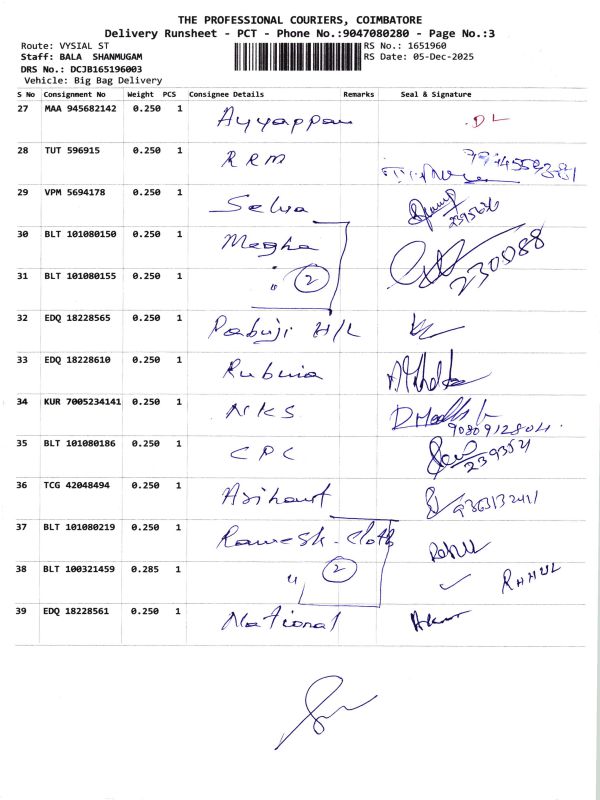 THE PROFESSIONAL COURIERS, COIMBATORE
Delivery Runsheet - PCT - Phone No.:9047080280 - Page No.:3
Route: VYSIAL ST
RS No.: 1651960
Staff: BALA SHANMUGAM
RS Date: 05-Dec-2025
DRS No.: DCJB165196003
Vehicle: Big Bag Delivery
S No Consignment No Weight PCS Consignee Details Remarks Seal & Signature
27 MAA 945682142 0.250 1 Ayyappan DL
28 TUT 596915 0.250 1 RRM
29 VPM 5694178 0.250 1 Selva
30 BLT 101080150 0.250 1 Megha 230088
31 BLT 101080155 0.250 1 " 2
32 EDQ 18228565 0.250 1 Pabuji H/L
33 EDQ 18228610 0.250 1
34 KUR 7005234141 0.250 1 NKS 9080912804
35 BLT 101080186 0.250 1 CPC 239354
36 TCG 42048494 0.250 1 Arihant
37 BLT 101080219 0.250 1 Ramesh-Cloth Rahul
38 BLT 100321459 0.285 1 " 2 ✓ RAHUL
39 EDQ 18228561 0.250 1 National